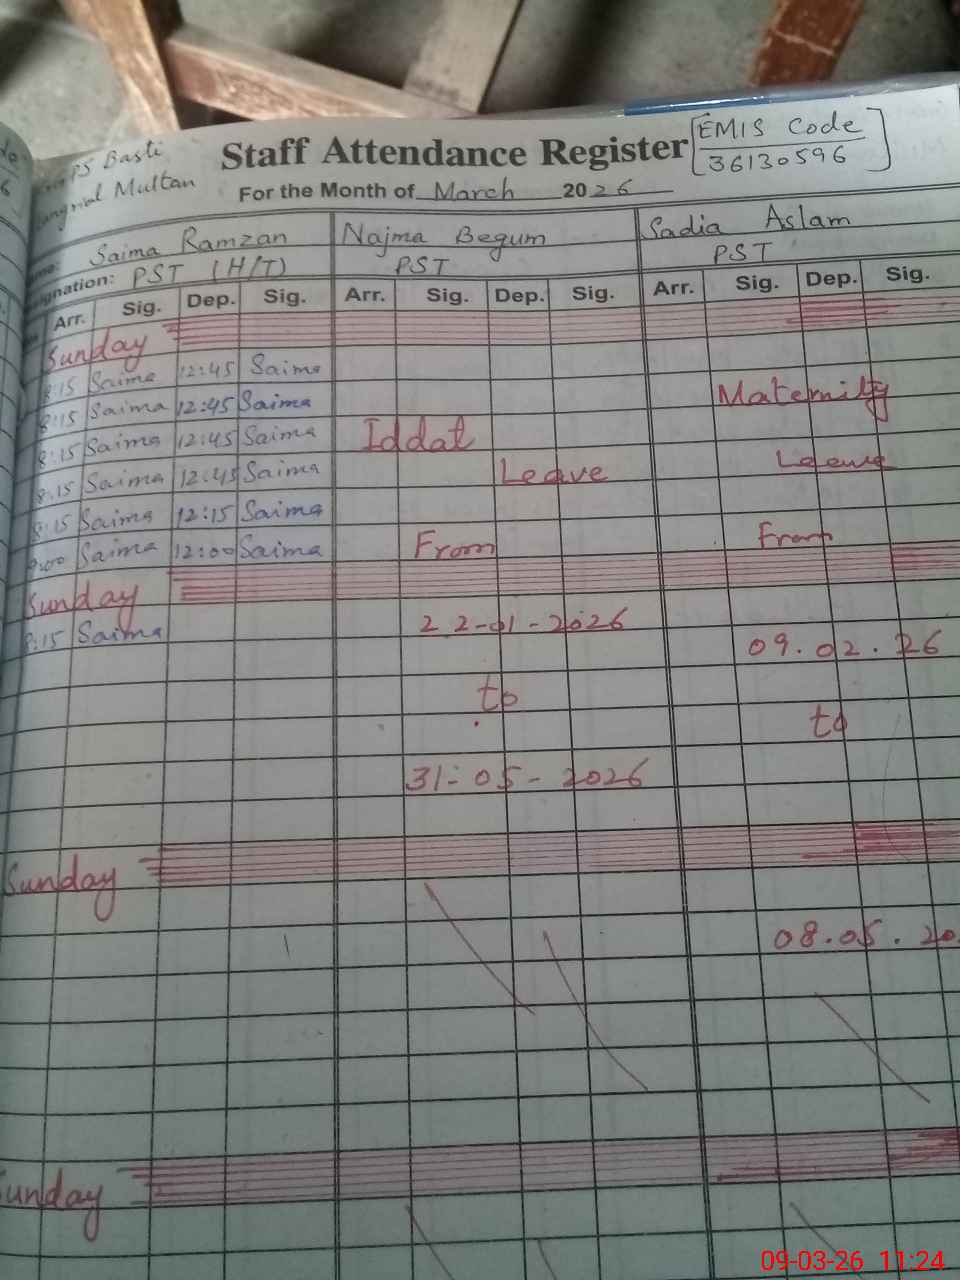 PS Basti
Multan
Staff Attendance Register
[EMIS Code
36130596]
For the Month of March 2026
Saima Ramzan Najma Begum Sadia Aslam
Designation: PST (H/T) PST PST
Arr. Sig. Dep. Sig. Arr. Sig. Dep. Sig. Arr. Sig. Dep. Sig.
Sunday
8:15 Saima 12:45 Saima
8:15 Saima 12:45 Saima Maternity
8:15 Saima 12:45 Saima Iddat
8:15 Saima 12:45 Saima Leave Leave
8:15 Saima 12:15 Saima
9:00 Saima 12:00 Saima From From
Sunday
8:15 Saima 22-01-2026
09.02.26
to
to
31-05-2026
Sunday
08.05.20
Sunday
09-03-26 11:24